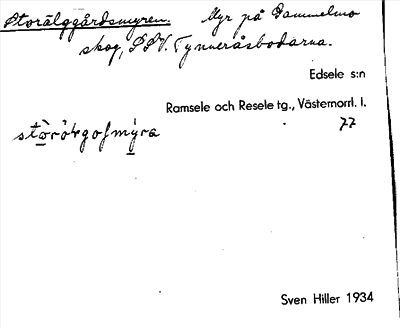 Storälggårdsmyren. Myr på Gammelmo
skog, SSV. Tynneråsbodarna.
Edsele s:n
Ramsele och Resele tg., Västernorrl. l.
77
Sven Hiller 1934